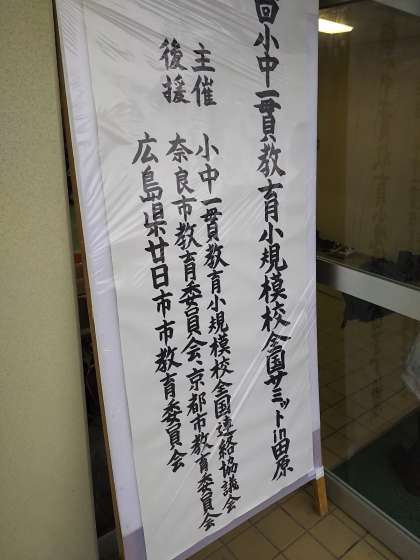 回小中一貫教育小規模校全国サミットin田原
主催 小中一貫教育小規模校全国連絡協議会
後援 奈良市教育委員会、京都市教育委員会
広島県廿日市市教育委員会